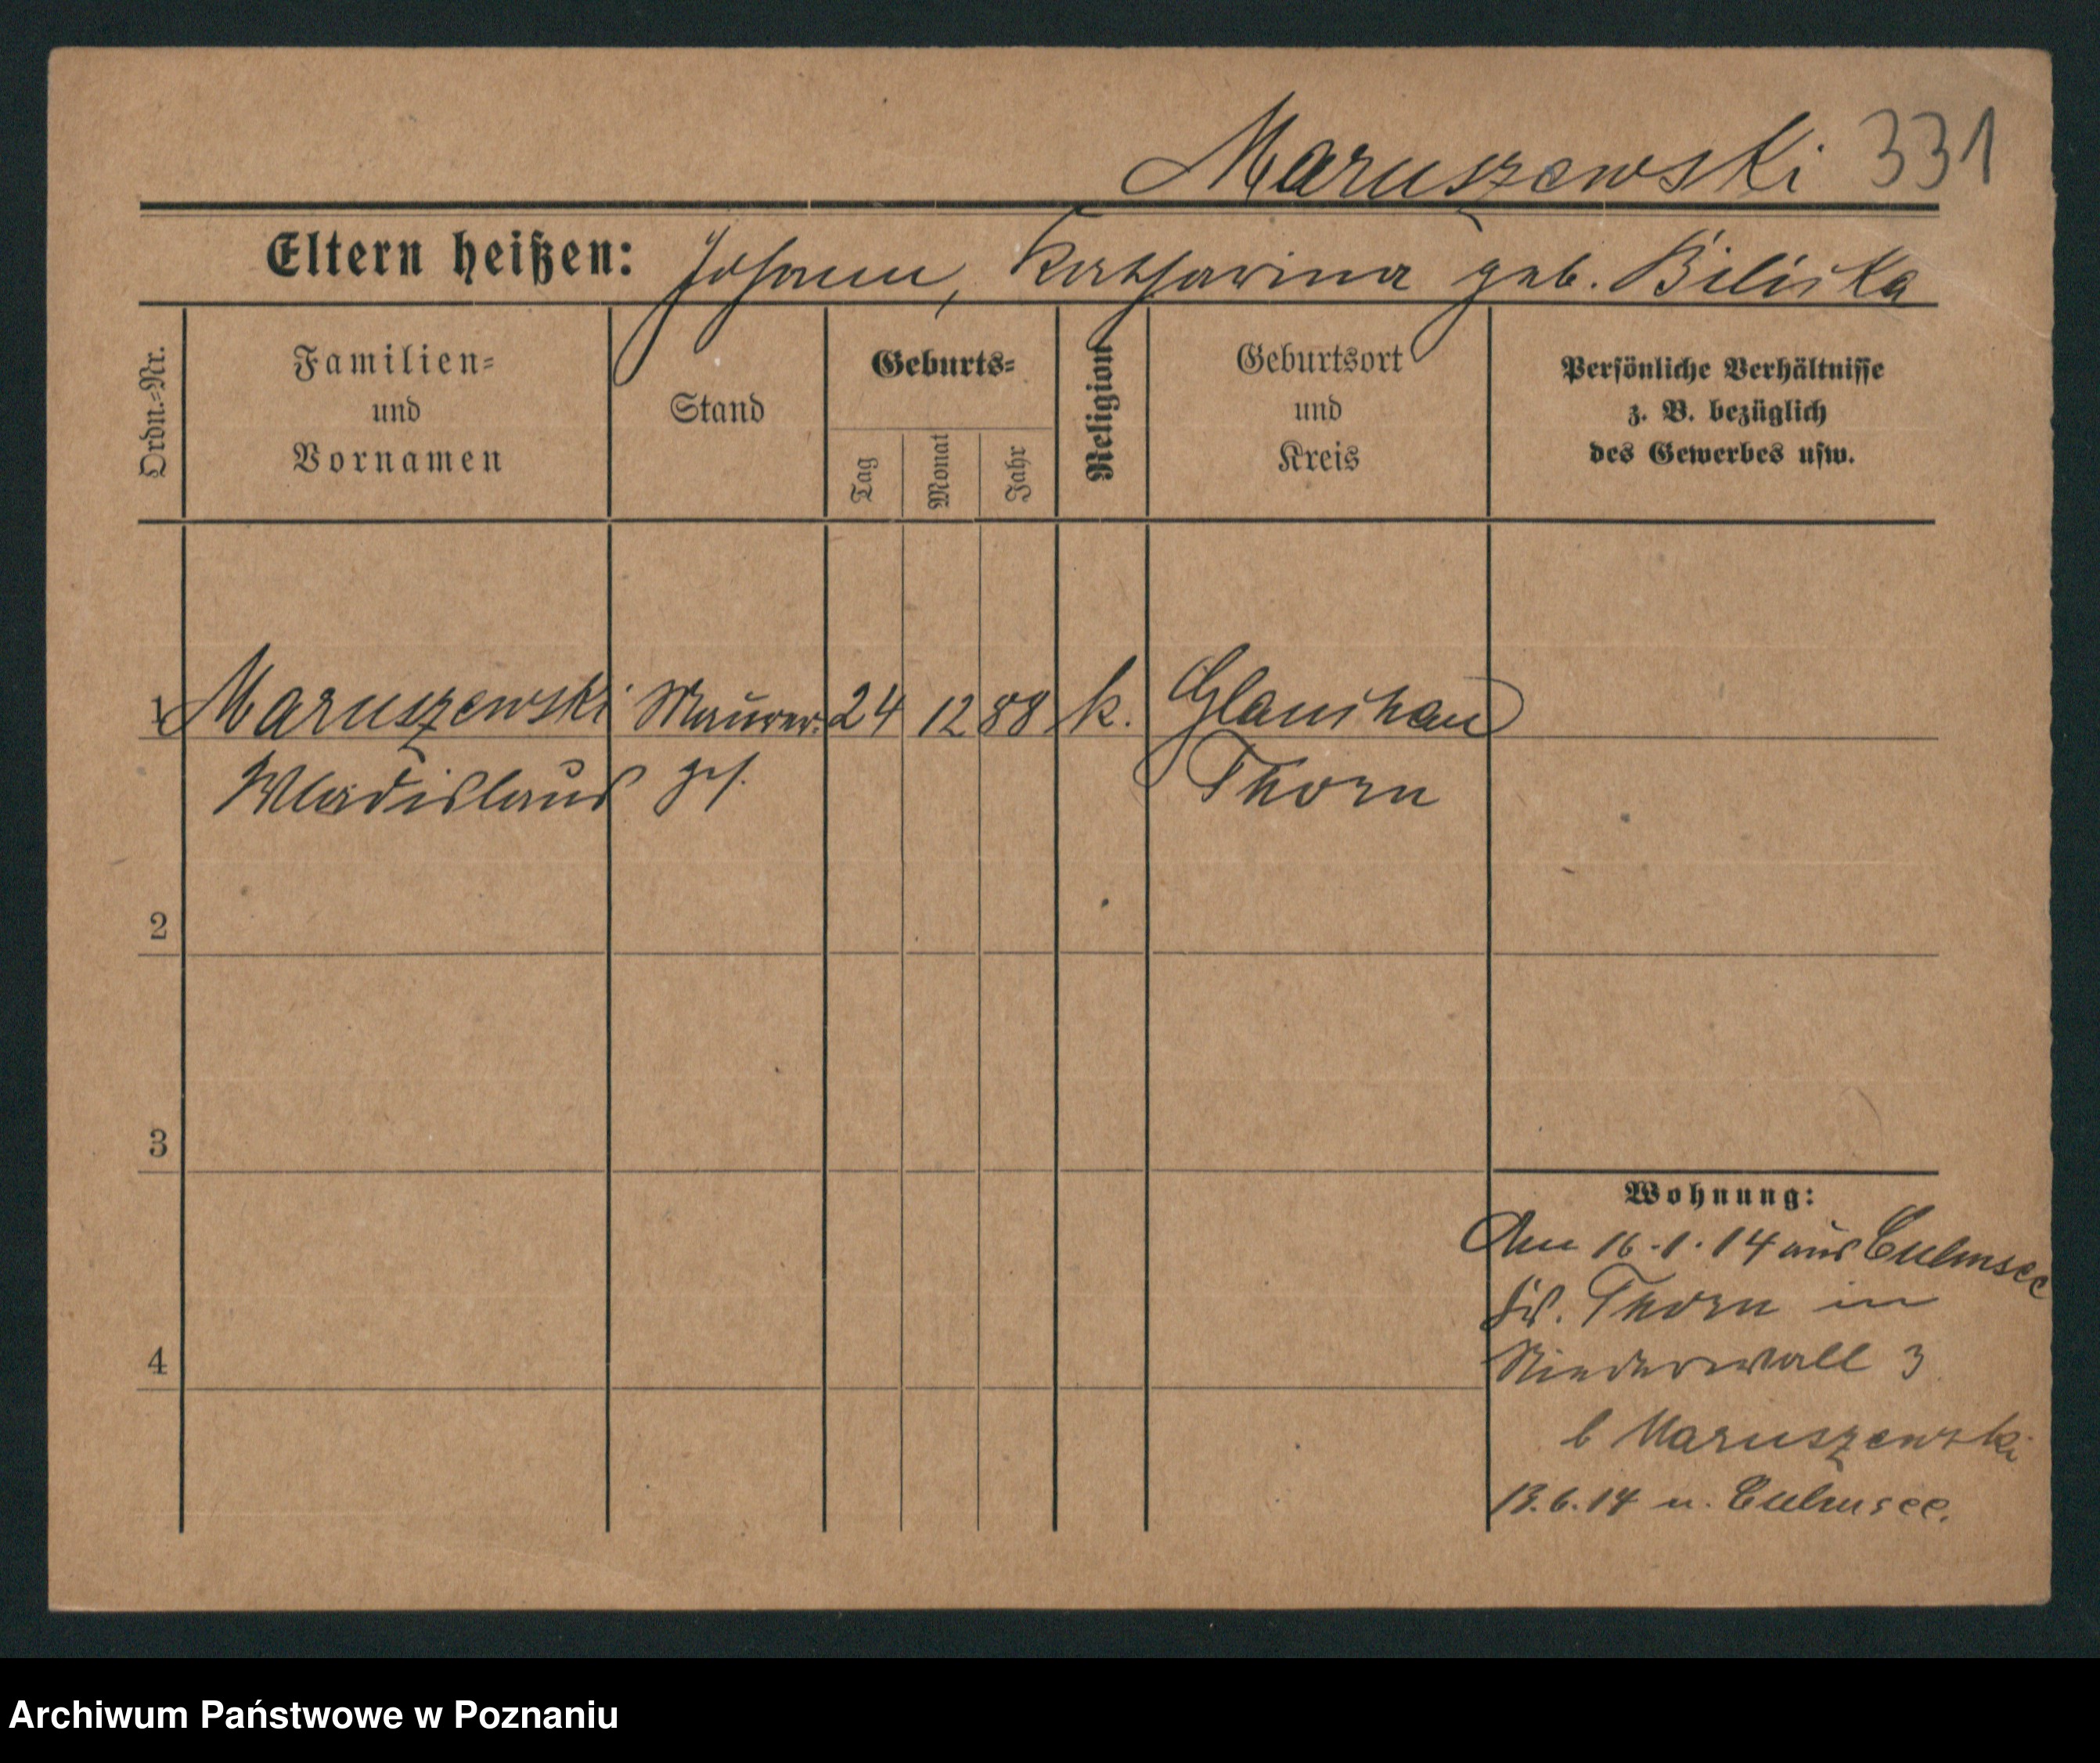 Maruszewski 331
Eltern heißen: Johann, Katharina geb. Biliska
Ordn.-Nr.
Familien-
und
Vornamen
Stand
Geburts-
Tag
Monat
Jahr
Religion
Geburtsort
und
Kreis
Persönliche Verhältnisse
z. B. bezüglich
des Gewerbes usw.
1 Maruszewski Maurer- 24 12 88 k. Glauchau
Wladislaus ges. Thorn
2
3
4
Wohnung:
Am 16.1.14 aus Culmsee
Thorn in
Niederwall 3
b Maruszewski
13.6.14 n. Culmsee.
Archiwum Państwowe w Poznaniu